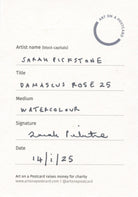 ART ON A POSTCARD
Artist name (block capitals)
SARAH PICKSTONE
Title
DAMASCUS ROSE 25
Medium
WATERCOLOUR
Signature
Sarah Pickstone
Date
14/1/25
Art on a Postcard raises money for charity
www.artonapostcard.com | @artonapostcard